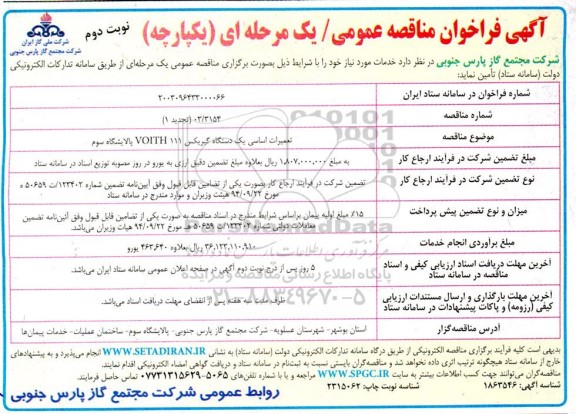 آگهی فراخوان مناقصه عمومی/ یک مرحله ای (یکپارچه)
نوبت دوم
شرکت ملی گاز ایران
شرکت مجتمع گاز پارس جنوبی
شرکت مجتمع گاز پارس جنوبی در نظر دارد خدمات مورد نیاز خود را با شرایط ذیل بصورت برگزاری مناقصه عمومی یک مرحله‌ای از طریق سامانه تدارکات الکترونیکی
دولت (سامانه ستاد) تأمین نماید:
شماره فراخوان در سامانه ستاد ایران
۲۰۰۳۰۹۶۴۳۳۰۰۰۰۶۶
شماره مناقصه
۰۲/۳۱۵۴ (تجدید ۱)
موضوع مناقصه
تعمیرات اساسی یک دستگاه گیربکس VOITH ۱۱۱ پالایشگاه سوم
مبلغ تضمین شرکت در فرآیند ارجاع کار
به مبلغ ۱،۸۰۷،۰۰۰،۰۰۰ ریال بعلاوه مبلغ تضمین دقیق ارزی به یورو در روز مصوبه توزیع اسناد در سامانه ستاد
نوع تضمین شرکت در فرآیند ارجاع کار
تضمین شرکت در فرآیند ارجاع کار بصورت یکی از تضامین قابل قبول وفق آیین‌نامه تضمین شماره ۱۲۳۴۰۲/ت ۵۰۶۵۹ ه
مورخ ۹۴/۰۹/۲۲ هیئت وزیران و موارد مندرج در سامانه ستاد
میزان و نوع تضمین پیش پرداخت
۱۵٪ مبلغ اولیه پیمان براساس شرایط مندرج در اسناد مناقصه به صورت یکی از تضامین قابل قبول وفق آئین‌نامه تضمین
معاملات دولتی شماره ۱۲۳۴۰۲/ت ۵۰۶۵۹ ه مورخ ۹۴/۰۹/۲۲ هیات وزیران می‌باشد.
مبلغ برآوردی انجام خدمات
۳۶،۱۲۳،۱۱۰،۹۱۰ ریال بعلاوه ۴۶۳،۶۴۰ یورو
آخرین مهلت دریافت اسناد ارزیابی کیفی و اسناد
مناقصه در سامانه ستاد
۵ روز پس از درج نوبت دوم آگهی در صفحه اعلان عمومی سامانه ستاد ایران می‌باشد.
آخرین مهلت بارگذاری و ارسال مستندات ارزیابی
کیفی (رزومه) و پاکات پیشنهادات در سامانه ستاد
ظرف مدت سه هفته پس از انقضای مهلت دریافت اسناد می‌باشد.
آدرس مناقصه‌گزار
استان بوشهر- شهرستان عسلویه- شرکت مجتمع گاز پارس جنوبی- پالایشگاه سوم- ساختمان عملیات- خدمات پیمان‌ها
پایگاه اطلاع رسانی مناقصه و مزایده
۰۲۱-۸۸۳۴۹۶۷۰-۵
بدیهی است کلیه فرآیند برگزاری مناقصه الکترونیکی از طریق درگاه سامانه تدارکات الکترونیکی دولت (سامانه ستاد) به نشانی WWW.SETADIRAN.IR انجام می‌پذیرد و به پیشنهادهای
خارج از سامانه ستاد هیچگونه ترتیب اثری داده نخواهد شد و مناقصه‌گران بایستی نسبت به ثبت‌نام در سامانه ستاد و دریافت گواهی امضاء الکترونیکی اقدام نمایند.
مناقصه‌گران می‌توانند جهت کسب اطلاعات بیشتر به سایت WWW.SPGC.IR مراجعه و یا با شماره تلفن‌های ۵۰۶۵-۰۷۷۳۱۳۱۵۶۲۹ تماس حاصل فرمایند.
شناسه آگهی: ۱۸۶۳۵۴۶ شناسه نوبت چاپ: ۲۳۱۵۰۶۲
روابط عمومی شرکت مجتمع گاز پارس جنوبی